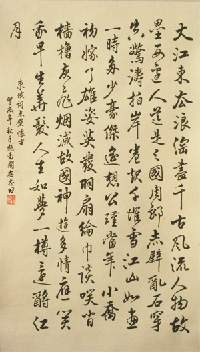 大江東去浪淘盡千古風流人物故
壘西邊人道是三國周郎赤壁亂石穿
空驚濤拍岸卷起千堆雪江山如畫
一時多少豪傑遙想公瑾當年小喬
初嫁了雄姿英發羽扇綸巾談笑間
檣櫓灰飛煙滅故國神遊多情應笑
我早生華髮人生如夢一樽還酹江
月
東坡詞赤壁懷古